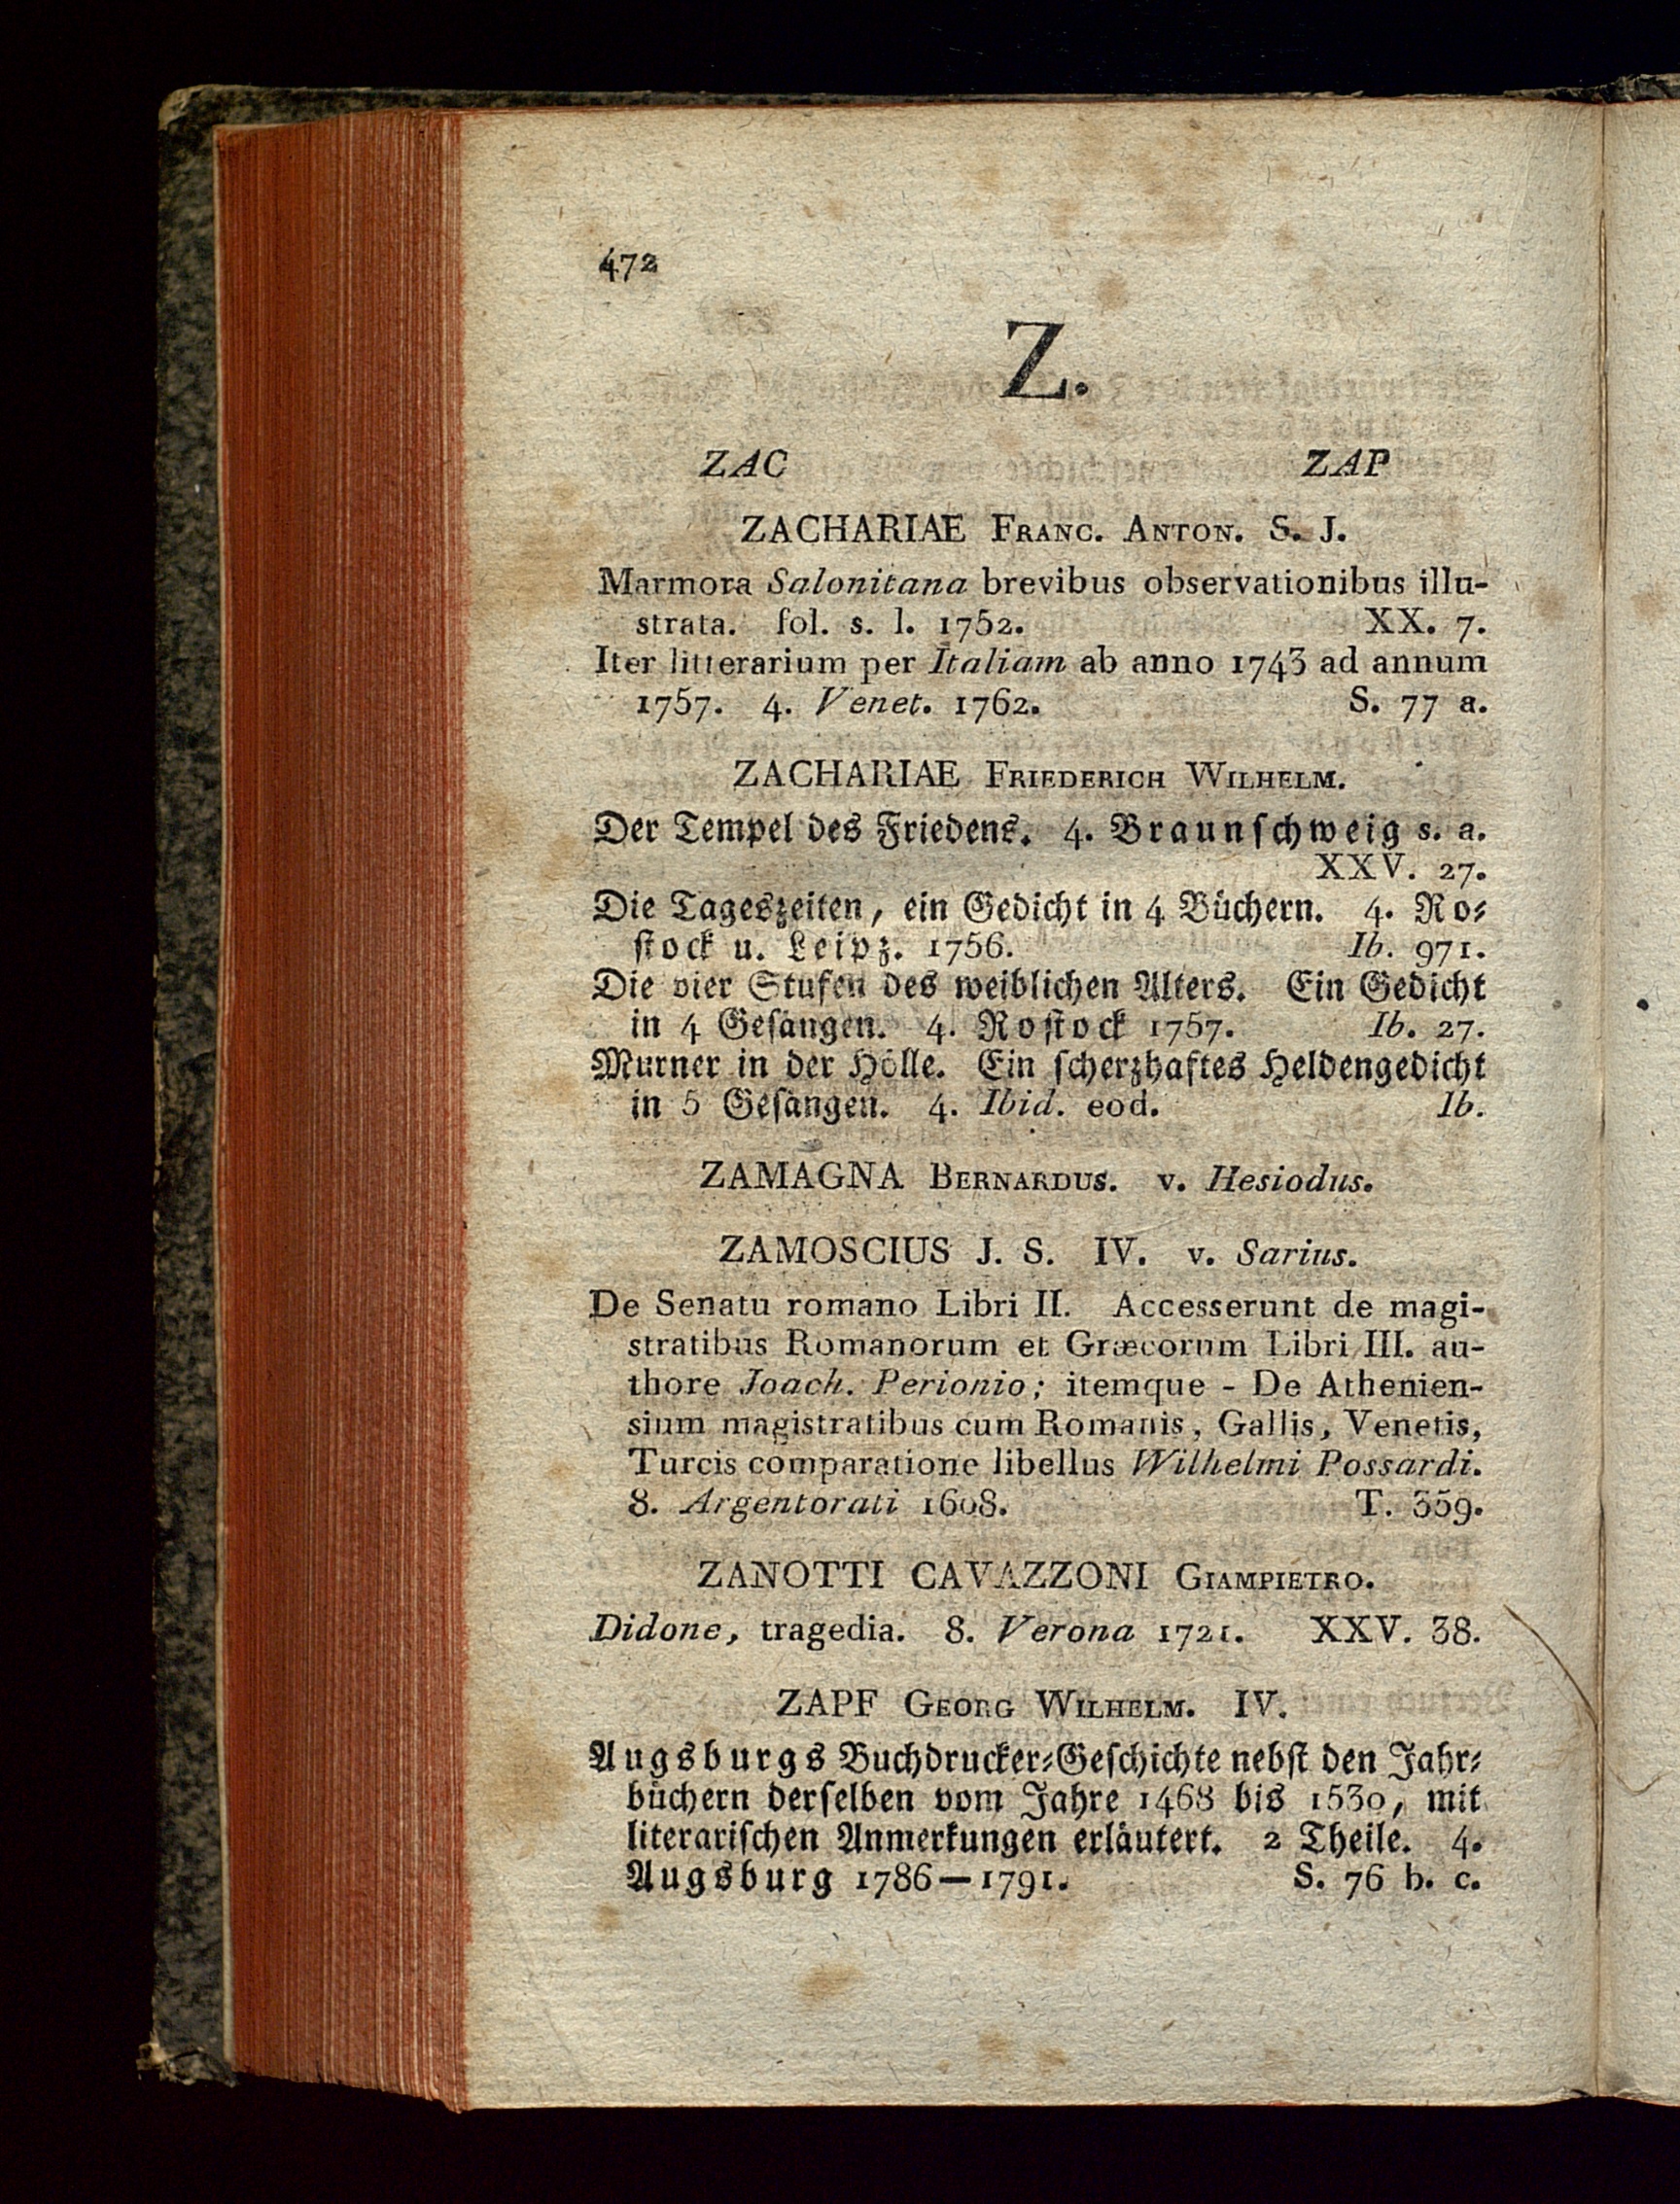 472
Z.
ZAC ZAP
ZACHARIAE FRANC. ANTON. S. J.
Marmora Salonitana brevibus observationibus illu-
strata. fol. s. l. 1752. XX. 7.
Iter litterarium per Italiam ab anno 1743 ad annum
1757. 4. Venet. 1762. S. 77 a.
ZACHARIAE FRIEDERICH WILHELM.
Der Tempel des Friedens. 4. Braunschweig s. a.
XXV. 27.
Die Tageszeiten, ein Gedicht in 4 Büchern. 4. Ro-
stock u. Leipz. 1756. Ib. 971.
Die vier Stufen des weiblichen Alters. Ein Gedicht
in 4 Gesängen. 4. Rostock 1757. Ib. 27.
Murner in der Hölle. Ein scherzhaftes Heldengedicht
in 5 Gesängen. 4. Ibid. eod. Ib.
ZAMAGNA BERNARDUS. v. Hesiodus.
ZAMOSCIUS J. S. IV. v. Sarius.
De Senatu romano Libri II. Accesserunt de magi-
stratibus Romanorum et Græcorum Libri III. au-
thore Joach. Perionio; itemque - De Athenien-
sium magistratibus cum Romanis, Gallis, Venetis,
Turcis comparatione libellus Wilhelmi Possardi.
8. Argentorati 1608. T. 359.
ZANOTTI CAVAZZONI GIAMPIETRO.
Didone, tragedia. 8. Verona 1721. XXV. 38.
ZAPF GEORG WILHELM. IV.
Augsburgs Buchdrucker-Geschichte nebst den Jahr-
büchern derselben vom Jahre 1468 bis 1530, mit
literarischen Anmerkungen erläutert. 2 Theile. 4.
Augsburg 1786—1791. S. 76 b. c.